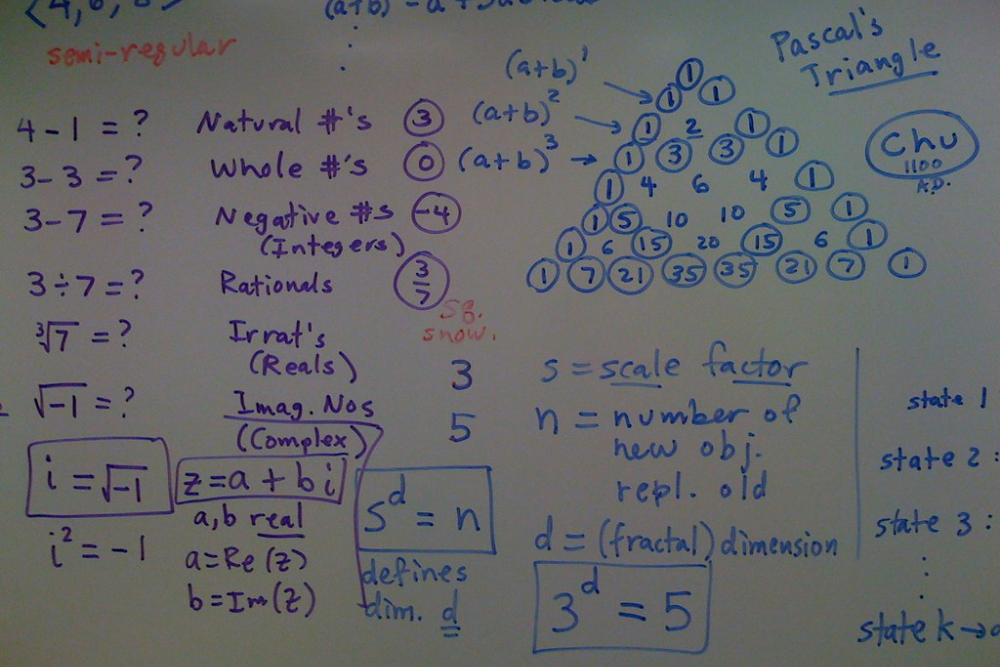 semi-regular
4 - 1 = ? Natural #'s 3
3 - 3 = ? Whole #'s 0
3 - 7 = ? Negative #s -4
(Integers)
3 ÷ 7 = ? Rationals 3/7
∛7 = ? Irrat's
(Reals)
√-1 = ? Imag. Nos
(Complex)
i = √-1
i² = -1
z = a + bi
a, b real
a = Re(z)
b = Im(z)
snow.
3
5
s^d = n
defines
dim. d
Pascal's
Triangle
Chu
1100
A.D.
(a+b)^1
(a+b)^2
(a+b)^3
1
1 1
1 2 1
1 3 3 1
1 4 6 4 1
1 5 10 10 5 1
1 6 15 20 15 6 1
1 7 21 35 35 21 7 1
s = scale factor
n = number of
new obj.
repl. old
d = (fractal) dimension
3^d = 5
state 1
state 2 :
state 3 :
⋮
state k →